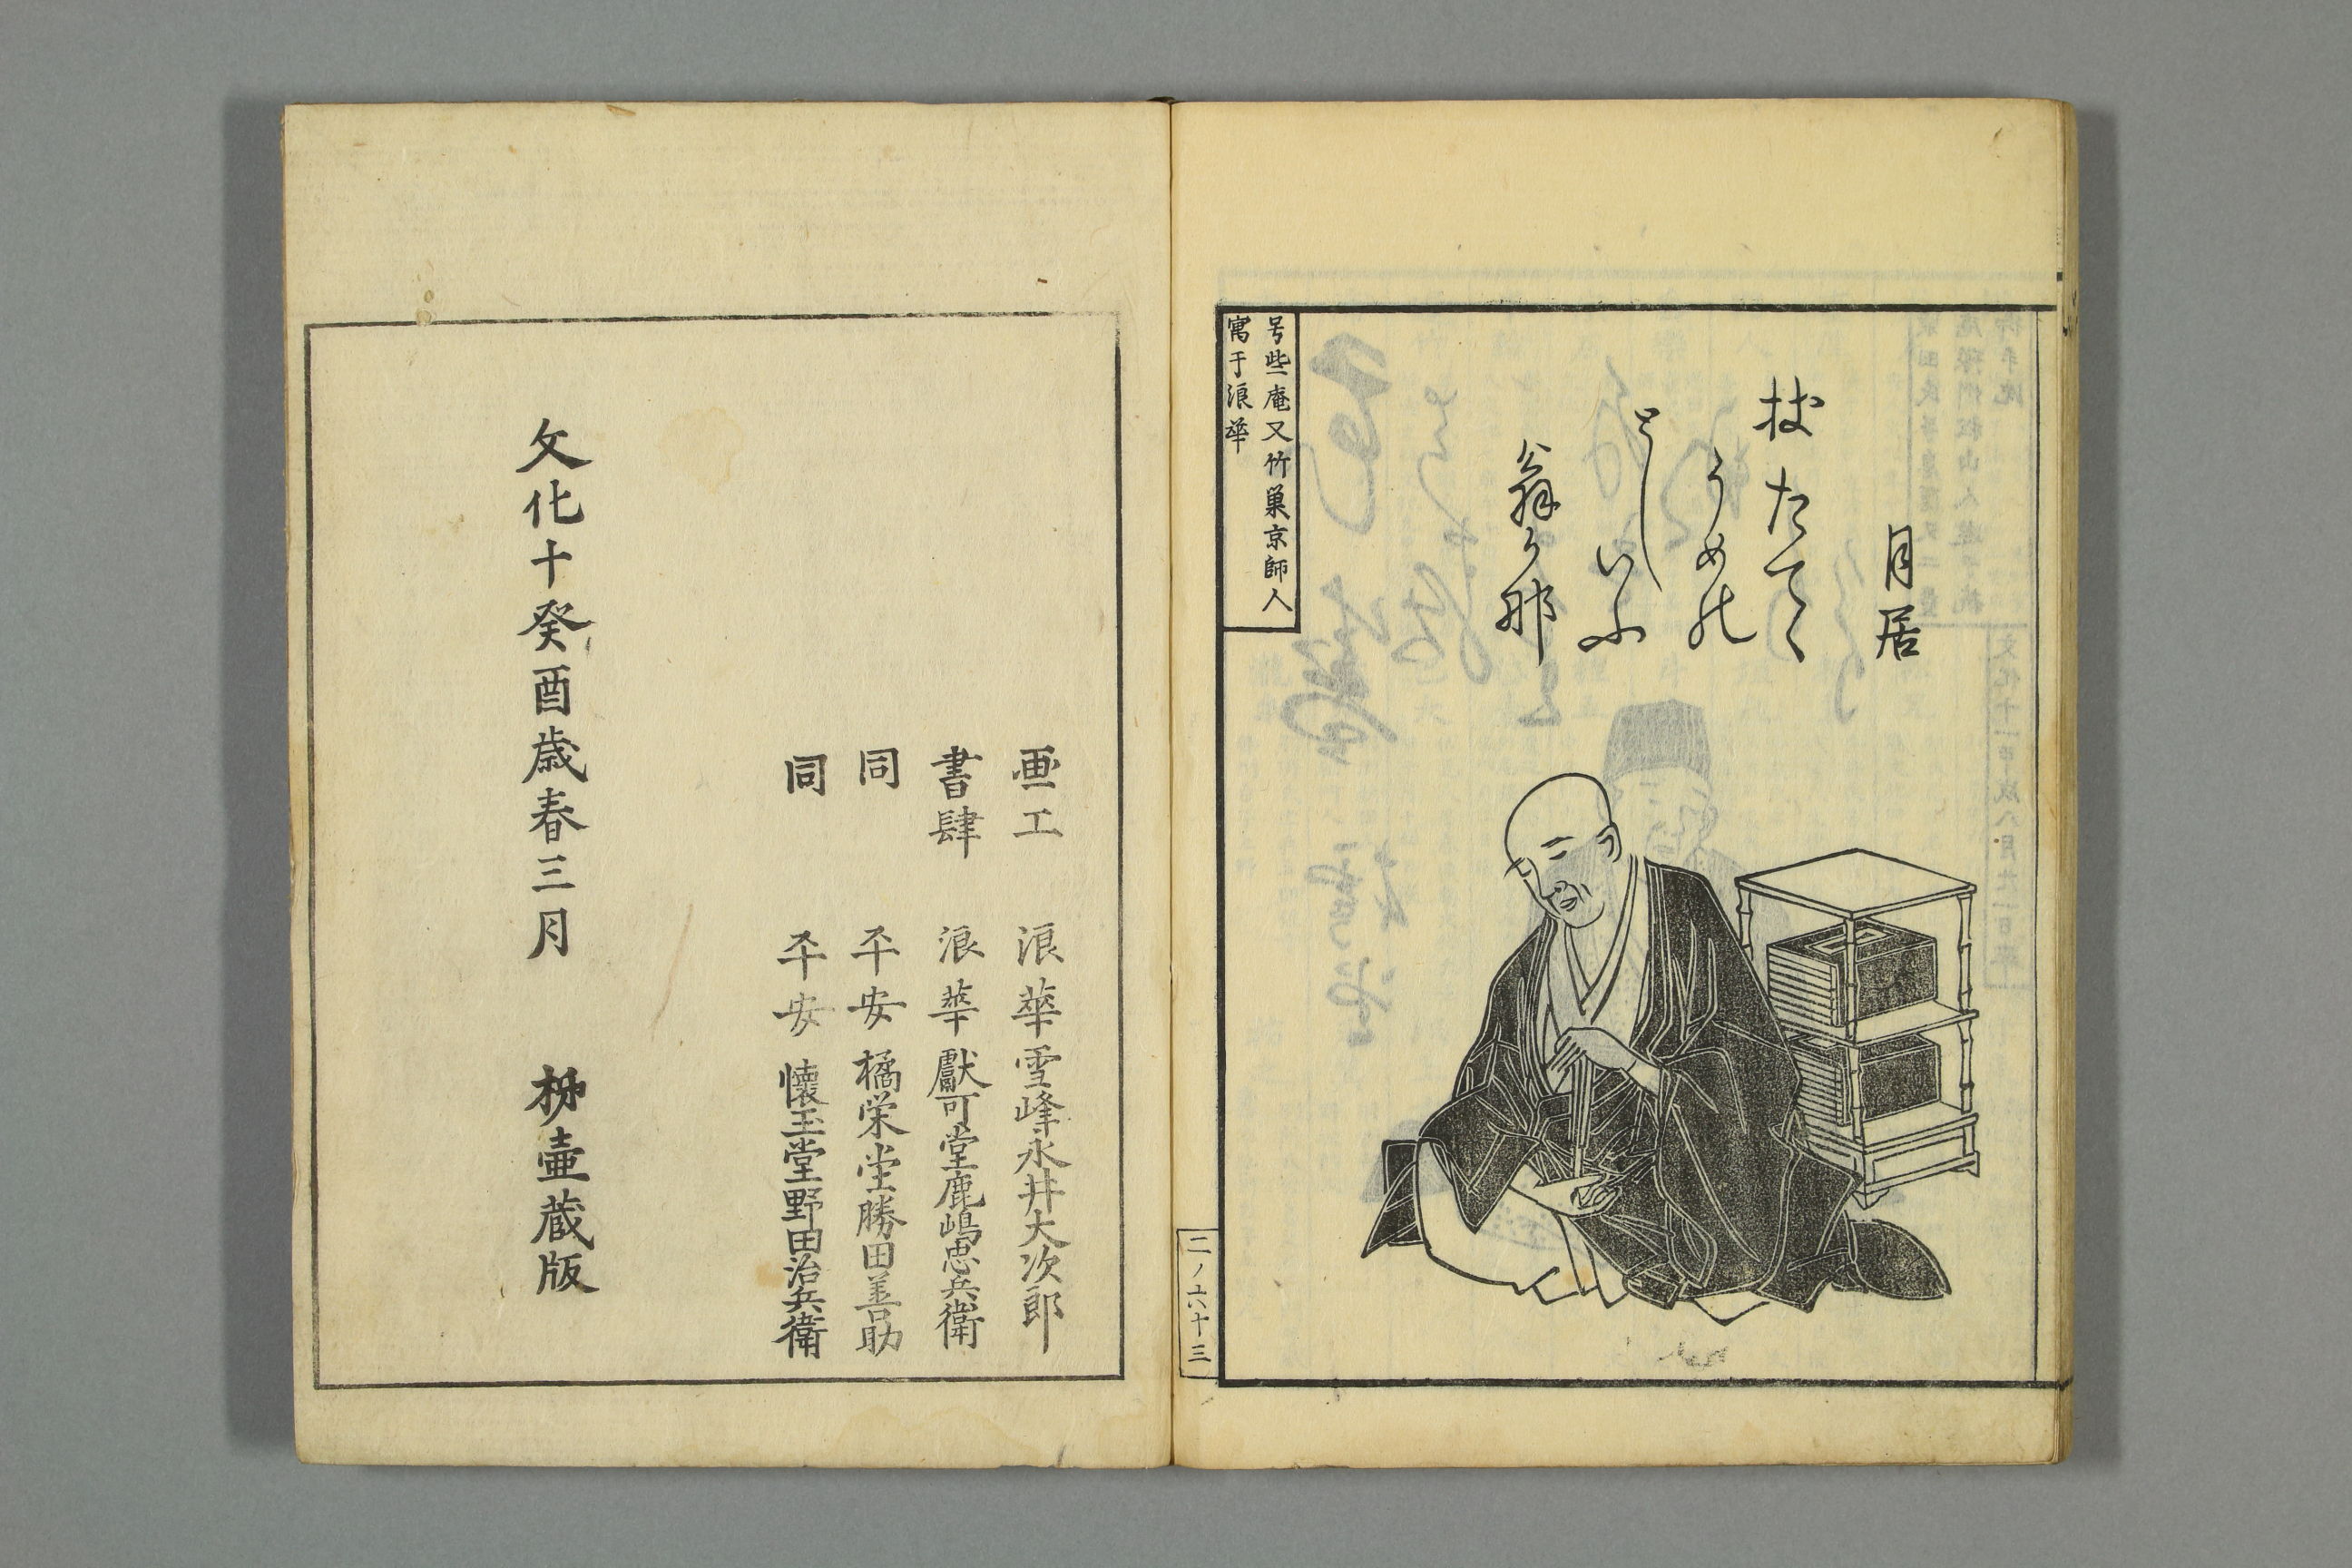 月居
杖たてゝ
うめの
としいふ
翁か那
号些庵又竹巣京師人
寓于浪華
二ノ六十三
画工 浪華 雪峰永井大次郎
書肆 浪華 獻可堂鹿嶋忠兵衛
同 平安 橘栄堂勝田善助
同 平安 懐玉堂野田治兵衛
文化十癸酉歳春三月 栁壷蔵版